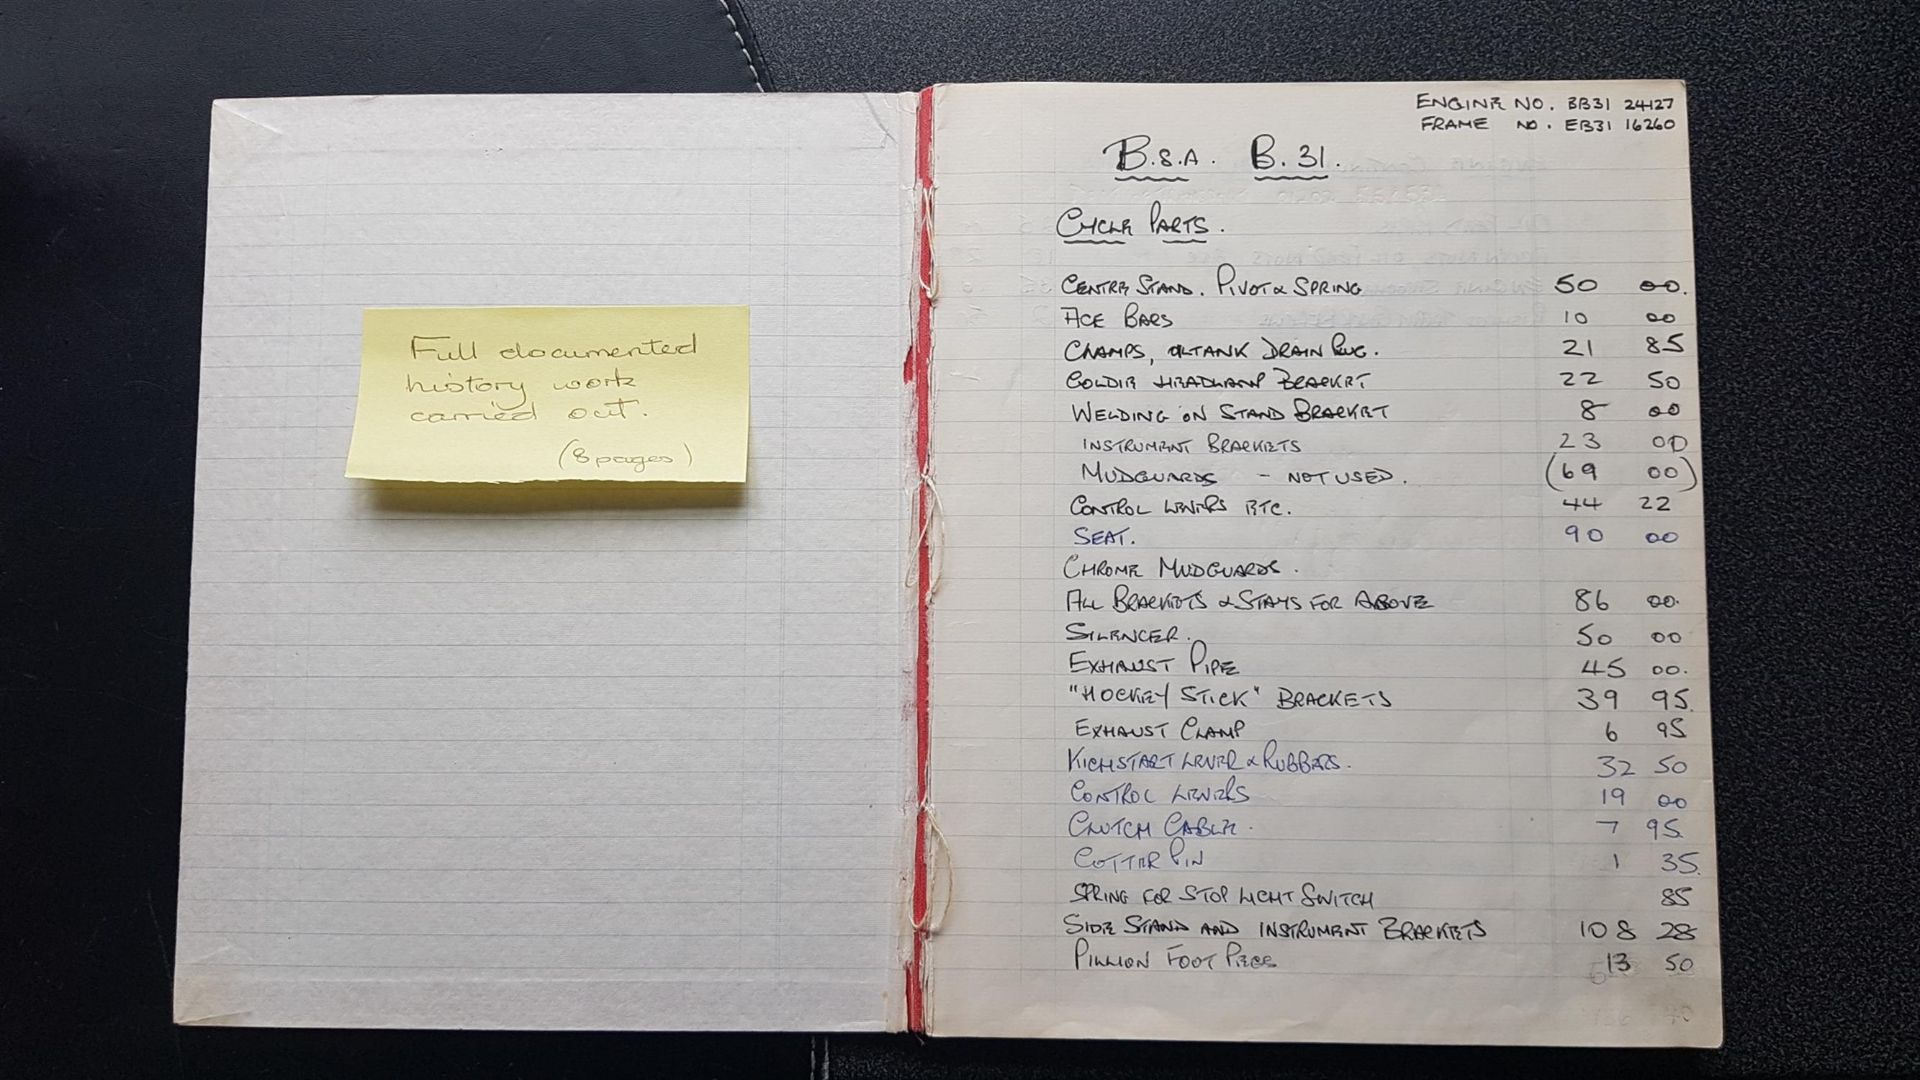 Full documented
history work
carried out.
(8 pages)
ENGINE NO. BB31 24127
FRAME NO. EB31 16260
B.S.A. B.31.
CYCLE PARTS.
CENTRE STAND. PIVOT & SPRING 50 00.
ACE BARS 10 00
CLAMPS, OILTANK DRAIN PLUG. 21 85
GOLDIE HEADLAMP BRACKET 22 50
WELDING ON STAND BRACKET 8 00
INSTRUMENT BRACKETS 23 00
MUDGUARDS - NOT USED. (69 00)
CONTROL LEVERS ETC. 44 22
SEAT. 90 00
CHROME MUDGUARDS.
ALL BRACKETS & STAYS FOR ABOVE 86 00.
SILENCER. 50 00
EXHAUST PIPE 45 00.
"HOCKEY STICK" BRACKETS 39 95.
EXHAUST CLAMP 6 95
KICKSTART LEVER & RUBBERS. 32 50
CONTROL LEVERS 19 00
CLUTCH CABLE. 7 95.
COTTER PIN 1 35.
SPRING FOR STOP LIGHT SWITCH 85
SIDE STAND AND INSTRUMENT BRACKETS 108 28
PILLION FOOT PEGS 13 50